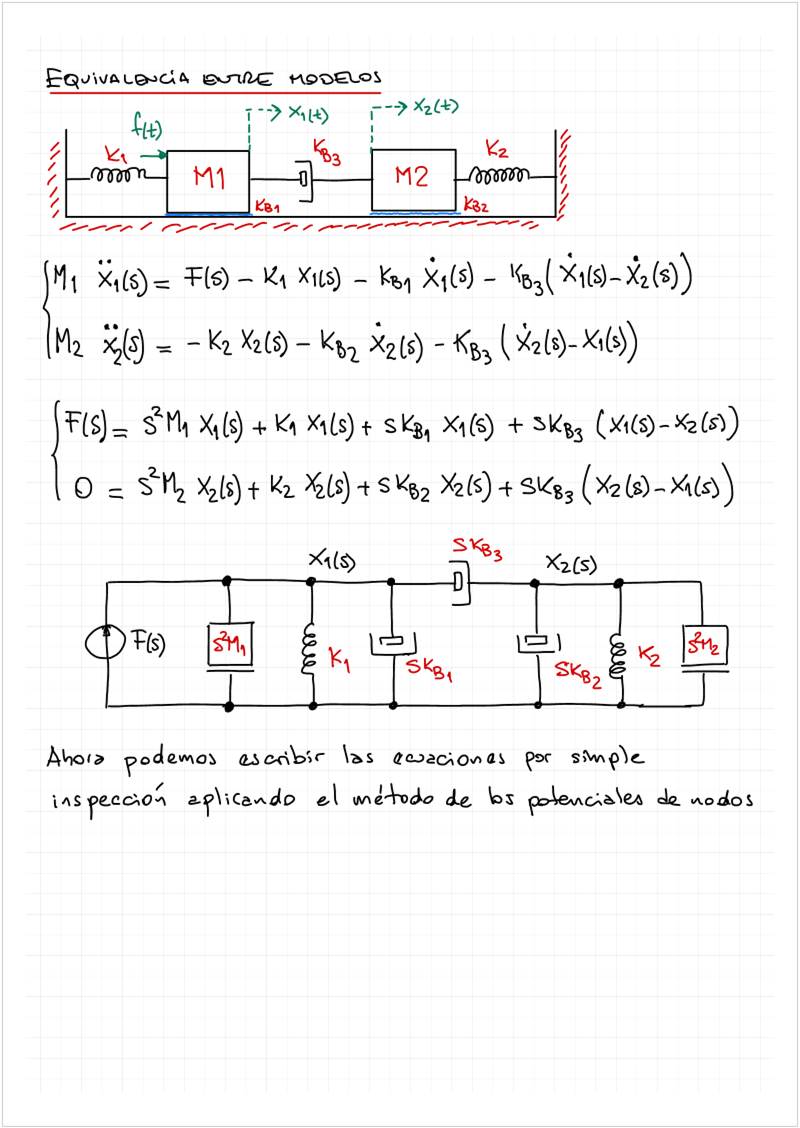 EQUIVALENCIA ENTRE MODELOS
f(t) X1(t) X2(t)
K1 M1 KB3 M2 K2
KB1 KB2
M1 Ẍ1(s) = F(s) − K1 X1(s) − KB1 Ẋ1(s) − KB3 (Ẋ1(s) − Ẋ2(s))
M2 Ẍ2(s) = −K2 X2(s) − KB2 Ẋ2(s) − KB3 (Ẋ2(s) − X1(s))
F(s) = S²M1 X1(s) + K1 X1(s) + SKB1 X1(s) + SKB3 (X1(s) − X2(s))
0 = S²M2 X2(s) + K2 X2(s) + SKB2 X2(s) + SKB3 (X2(s) − X1(s))
X1(s) SKB3 X2(s)
F(s) S²M1 K1 SKB1 SKB2 K2 S²M2
Ahora podemos escribir las ecuaciones por simple
inspección aplicando el método de los potenciales de nodos